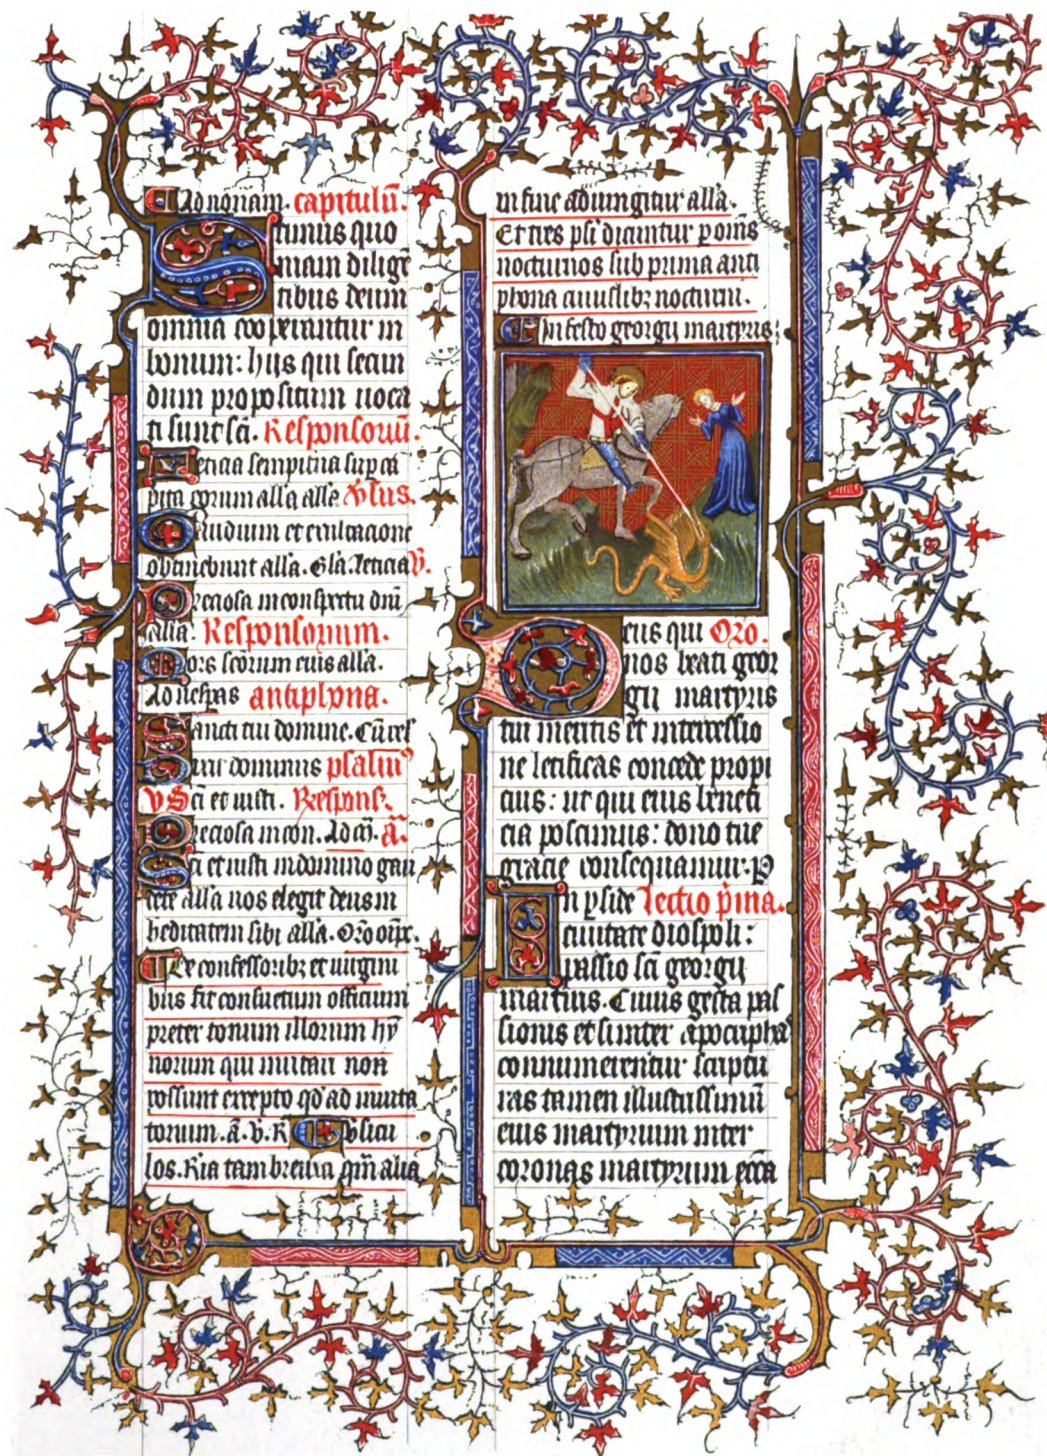 Ad nonam. capitulū.
Scimus quo
niam diligē
tibus deum
omnia cooperantur in
bonum: hiis qui secun
dum propositum uoca
ti sunt scī. Responsoriū.
Leticia sempitna sup ca
pita eorum alla alla v̄sus.
Gaudium et exultacione
obtinebunt alla. Gla. leticia v̄.
Preciosa in conspectu dnī
alla. Responsorium.
Mors scorum eius alla.
Ad uespas antiphona.
Sancti tui domine. Cū ref
Dixit dominus psalmꝰ
VS Sci et iusti. Respons.
Preciosa in con. Ad. ā.
Sci et iusti in domino gau
dete alla uos elegit deus in
heditatem sibi alla. Oro
De confessoribꝫ et uirgini
bus fit consuetum officium
preter tonum illorum hȳ
norum qui mutari non
possunt excepto qd ad inuita
torium. ā. v̄. R Vsicu
los. Ria tam breuia qm̄ alia
in fine adiungitur alla.
Et tres psī dicuntur p oīns
nocturnos sub prima anti
phona cuiuslibꝫ nocturni.
In festo georgii martyris:
Deus qui Oro.
nos beati geor
gii martyris
tui meritis et intercessio
ne letificas concede propi
cius: ut qui eius benefi
cia poscimus: dono tue
gracie consequamur. P
In pside Lectio p̄ma.
ciuitate diospoli:
passio sci georgii
martiris. Cuius gesta pas
sionis et si inter apocripha
connumerentur scriptu
ras tamen illustrissimū
eius martyrium inter
coronas martyrum ecca